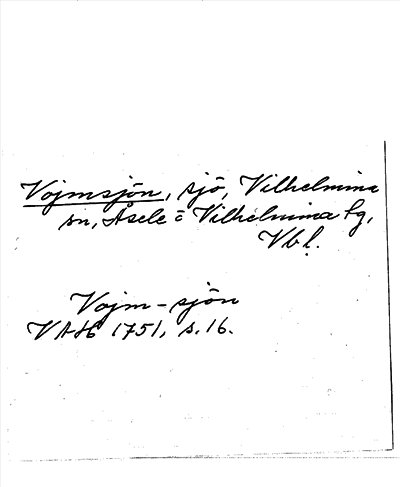 Vojmsjön, sjö, Vilhelmina
sn, Åsele o Vilhelmina tg,
Vbl.
Vojm-sjön
VAH 1751, s. 16.